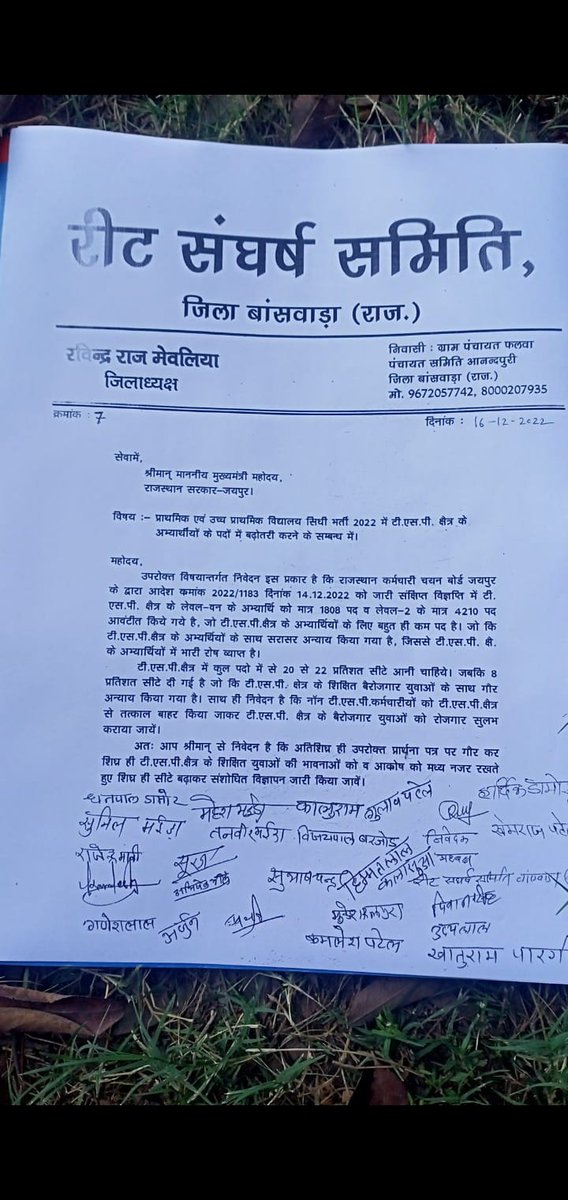 रीट संघर्ष समिति,
जिला बांसवाड़ा (राज.)
रविन्द्र राज मेवलिया
जिलाध्यक्ष
निवासी : ग्राम पंचायत फलवा
पंचायत समिति आनन्दपुरी
जिला बांसवाड़ा (राज.)
मो. 9672057742, 8000207935
क्रमांक : 7
दिनांक : 16-12-2022
सेवामें,
श्रीमान् माननीय मुख्यमंत्री महोदय,
राजस्थान सरकार-जयपुर।
विषय :– प्राथमिक एवं उच्च प्राथमिक विद्यालय सिधी भर्ती 2022 में टी.एस.पी. क्षैत्र के
अभ्यार्थीयों के पदों में बढ़ोतरी करने के सम्बन्ध में।
महोदय,
उपरोक्त विषयान्तर्गत निवेदन इस प्रकार है कि राजस्थान कर्मचारी चयन बोर्ड जयपुर
के द्वारा आदेश कमांक 2022/1183 दिनांक 14.12.2022 को जारी संक्षिप्त विज्ञप्ति में टी.
एस.पी. क्षैत्र के लेवल-वन के अभ्यार्थि को मात्र 1808 पद व लेवल-2 के मात्र 4210 पद
आवंटीत किये गये है, जो टी.एस.पी.क्षैत्र के अभ्यार्थियों के लिए बहुत ही कम पद है। जो कि
टी.एस.पी.क्षैत्र के अभ्यर्थियों के साथ सरासर अन्याय किया गया है, जिससे टी.एस.पी. क्षै.
के अभ्यार्थियों में भारी रोष व्याप्त है।
टी.एस.पी.क्षैत्र में कुल पदो में से 20 से 22 प्रतिशत सीटे आनी चाहिये। जबकि 8
प्रतिशत सीटे दी गई है जो कि टी.एस.पी. क्षैत्र के शिक्षित बैरोजगार युवाओं के साथ गौर
अन्याय किया गया है। साथ ही निवेदन है कि नॉन टी.एस.पी.कर्मचारीयों को टी.एस.पी.क्षैत्र
से तत्काल बाहर किया जाकर टी.एस.पी. क्षैत्र के बैरोजगार युवाओं को रोजगार सुलभ
कराया जायें।
अतः आप श्रीमान् से निवेदन है कि अतिशिघ्र ही उपरोक्त प्रार्थना पत्र पर गौर कर
शिघ्र ही टी.एस.पी.क्षैत्र के शिक्षित युवाओं की भावनाओं को व आक्रोष को मध्य नजर रखते
हुए शिघ्र ही सीटे बढ़ाकर संशोधित विज्ञापन जारी किया जावें।
धनपाल डामोर
कालुराम
गुलाब पटेल
हार्दिक डामोर
सुनिल मईडा
विजयपाल
निवेदक
खेमराज
गणेशलाल
अर्जुन
कमलेश पटेल
खातुराम